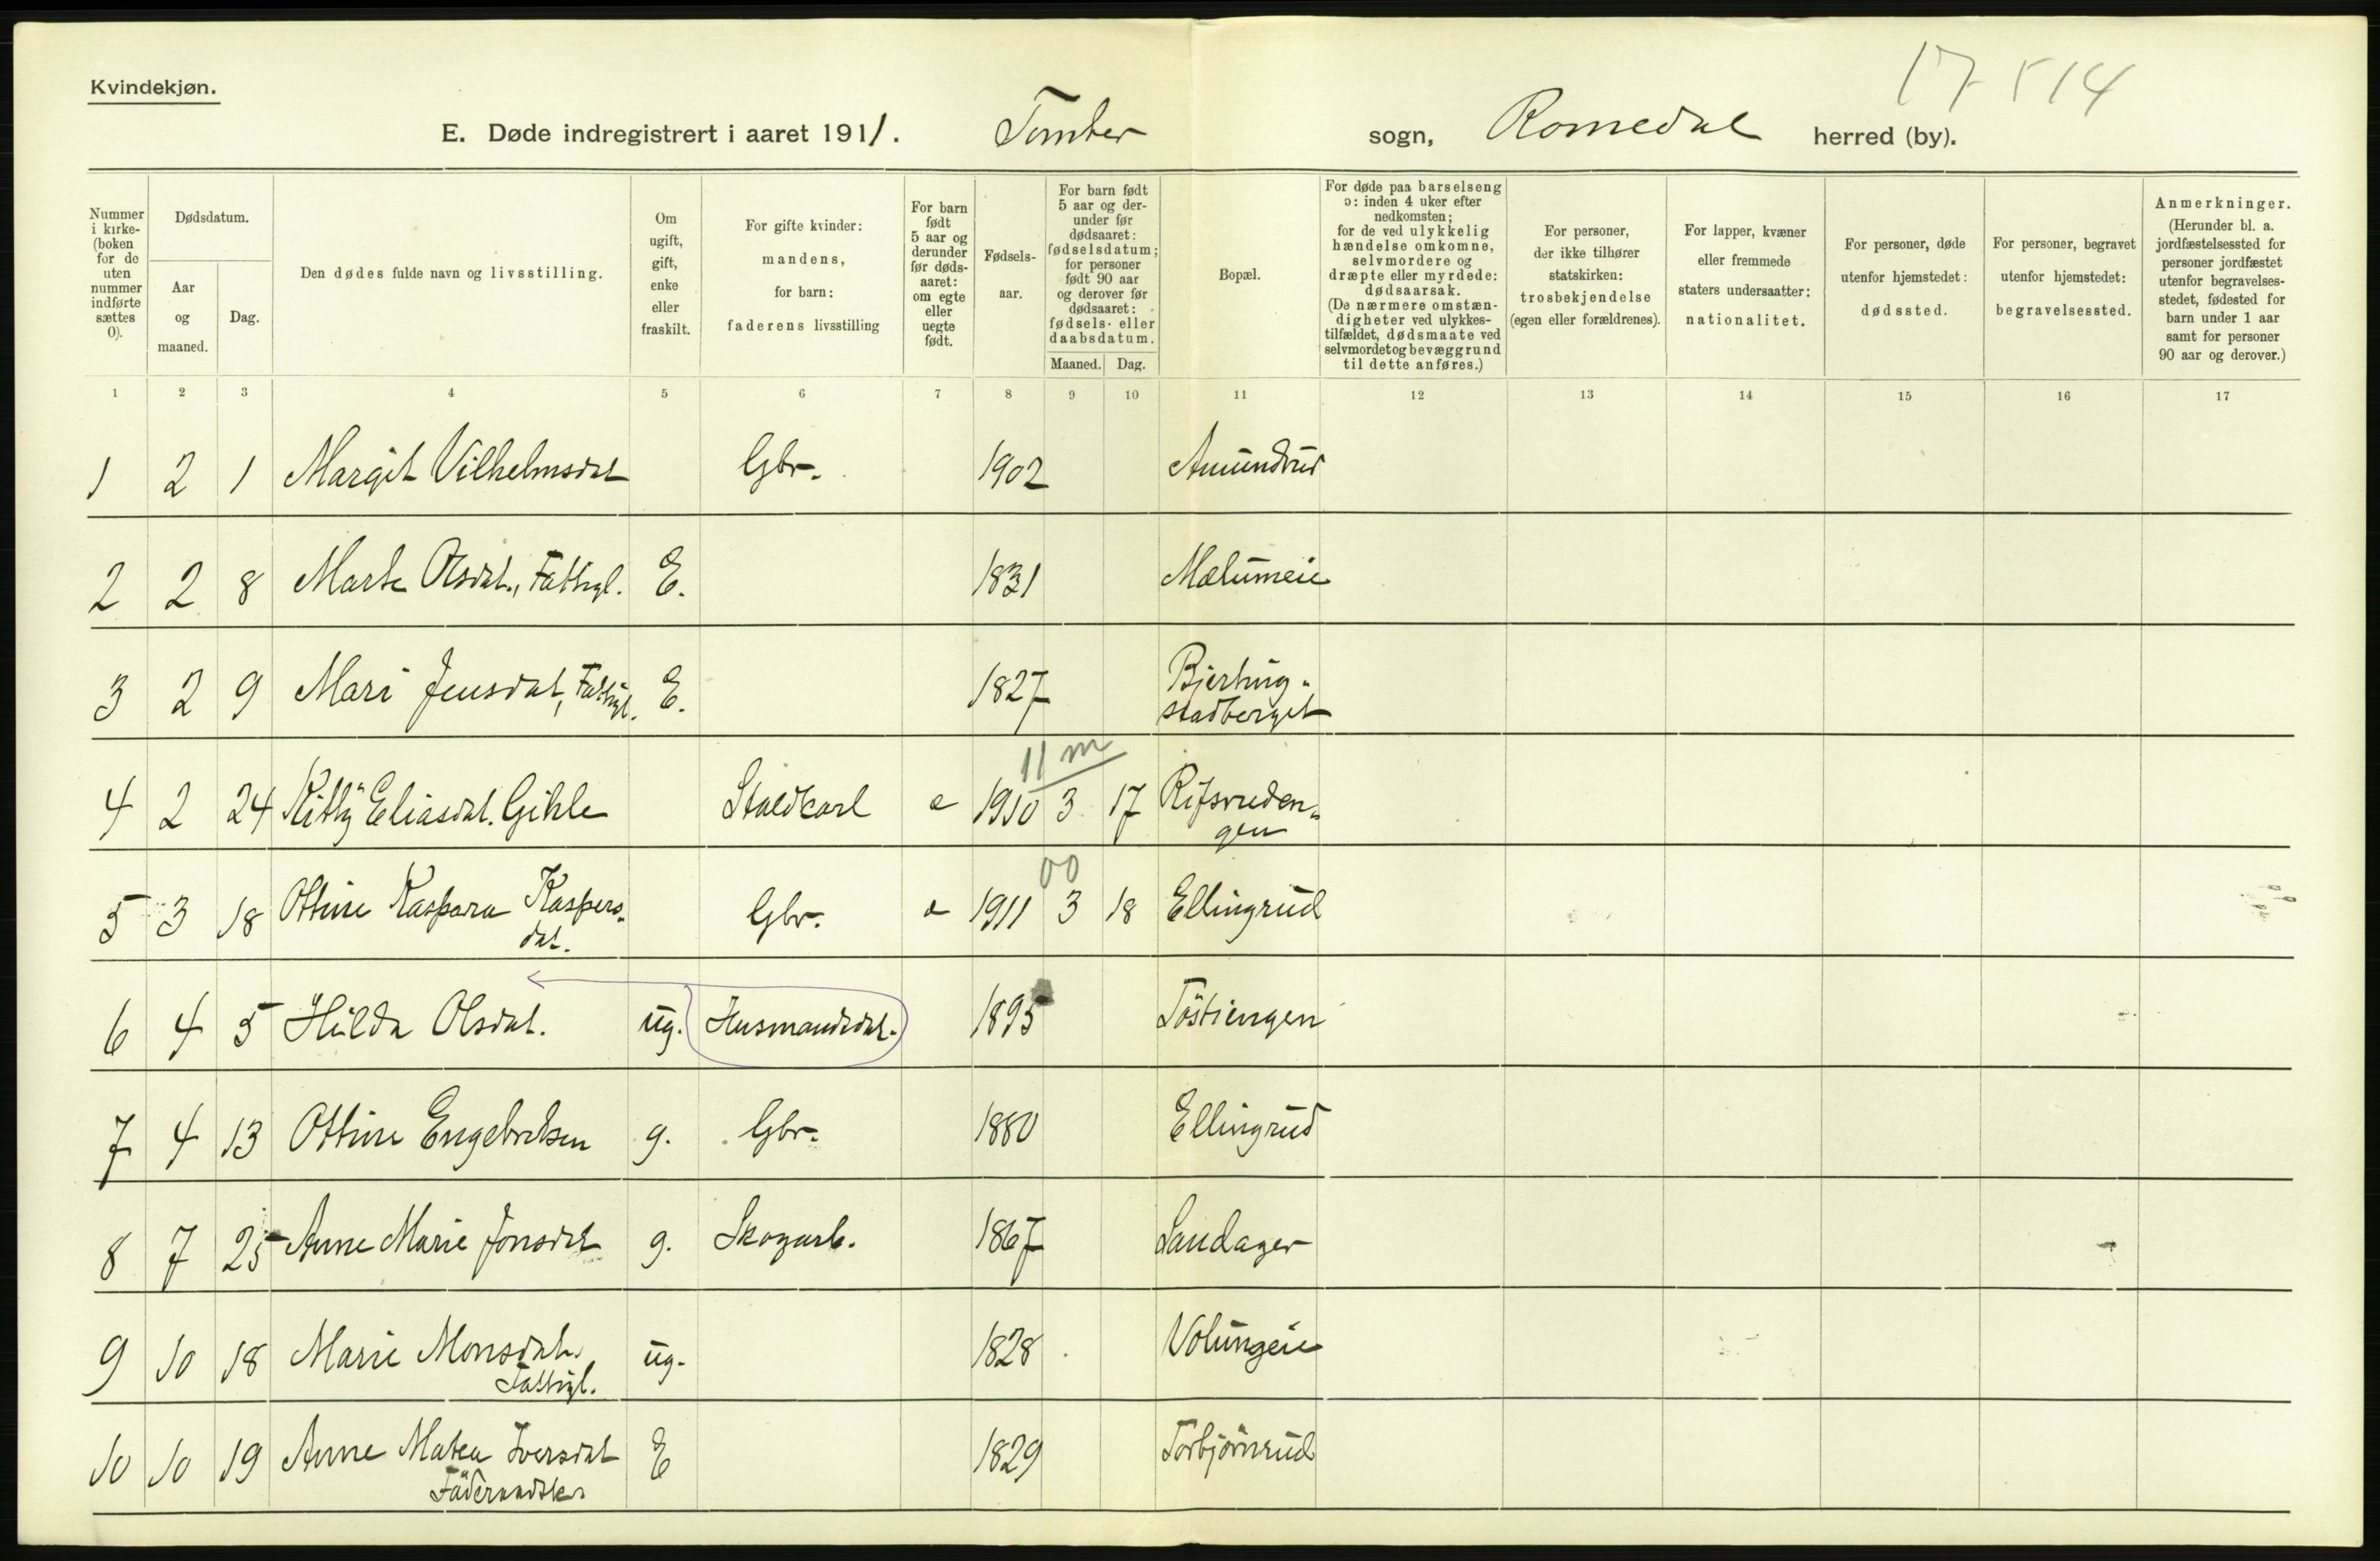 17 514
Kvindekjøn.
E. Døde indregistrert i aaret 1911. Tomter sogn, Romedal herred (by).
Nummer i kirke- (boken for de uten nummer indførte sættes 0).
Dødsdatum.
Aar og maaned.
Dag.
Den dødes fulde navn og livsstilling.
Om ugift, gift, enke eller fraskilt.
For gifte kvinder: mandens, for barn: faderens livsstilling
For barn født 5 aar og derunder før døds- aaret: om egte eller uegte født.
Fødsels- aar.
For barn født 5 aar og der- under før dødsaaret: fødselsdatum; for personer født 90 aar og derover før dødsaaret: fødsels- eller daabsdatum.
Maaned. Dag.
Bopæl.
For døde paa barselseng ɔ: inden 4 uker efter nedkomsten; for de ved ulykkelig hændelse omkomne, selvmordere og dræpte eller myrdede: dødsaarsak. (De nærmere omstæn- digheter ved ulykkes- tilfældet, dødsmaate ved selvmordet og bevæggrund til dette anføres.)
For personer, der ikke tilhører statskirken: trosbekjendelse (egen eller forældrenes).
For lapper, kvæner eller fremmede staters undersaatter: nationalitet.
For personer, døde utenfor hjemstedet: dødssted.
For personer, begravet utenfor hjemstedet: begravelsessted.
Anmerkninger. (Herunder bl. a. jordfæstelsessted for personer jordfæstet utenfor begravelses- stedet, fødested for barn under 1 aar samt for personer 90 aar og derover.)
1 2 3 4 5 6 7 8 9 10 11 12 13 14 15 16 17
1 2 1 Margit Vilhelmsdat Gbr. 1902 Amundrud
2 2 8 Marte Olsdat., Fattigl. E. 1831 Mælumeie
3 2 9 Mari Jensdat, Fattigl. E. 1827 Bjerting-
stadberget
11 m
4 2 24 Kitty Eliasdat. Gihle Staldkarl e 1910 3 17 Rifsvreden-
gen
00
5 3 18 Ottine Kaspara Kaspers- Gbr. e 1911 3 18 Ellingrud
dat.
6 4 5 Hilda Olsdat. ug. Husmandsdat. 1895 Töstiengen
7 4 13 Ottine Engebretsen g. Gbr. 1880 Ellingrud
8 7 25 Anne Marie Jonsdat g. Skogarb. 1867 Sandager
9 10 18 Marie Monsdat. ug. 1828 Volungeie
Fattigl.
10 10 19 Anne Matea Iversdat E 1829 Torbjörnrud
Föderaadsk.